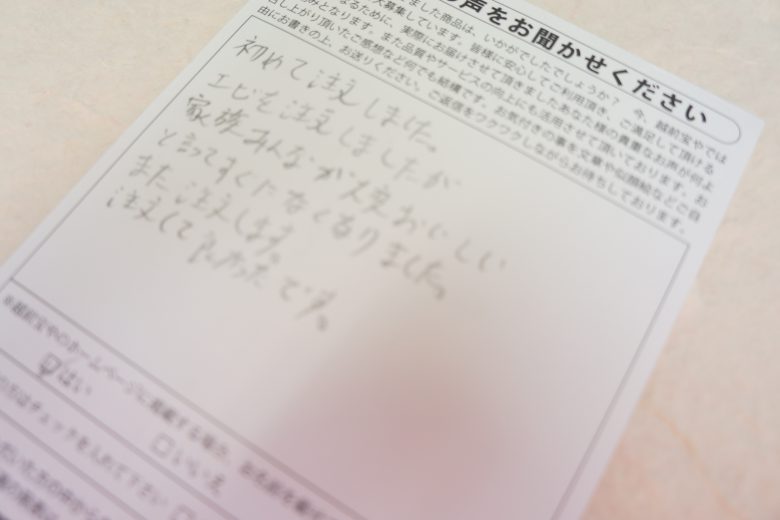 声をお聞かせください
ました商品は、いかがでしたでしょうか？ 今、越前宝やでは
大募集しています。皆様に安心してご利用頂き、ご満足して頂ける
なるために、実際にお届けさせて頂きましたあなた様の貴重なお声が何よ
みとなります。また品質やサービスの向上にも活用させて頂いております。お
召し上がり頂いたご感想など何でも結構です。お気付きの事を文章や似顔絵などご自
由にお書きの上、お送りください。ご返信をワクワクしながらお待ちしております。
初めて注文しました。
エビを注文しましたが
家族みんなが大変おいしい
と言ってすぐになくなりました。
また注文します
注文して良かったです。
※越前宝やのホームページに掲載する場合、お名前を
はい
いいえ
の方はチェックを入れて下さい